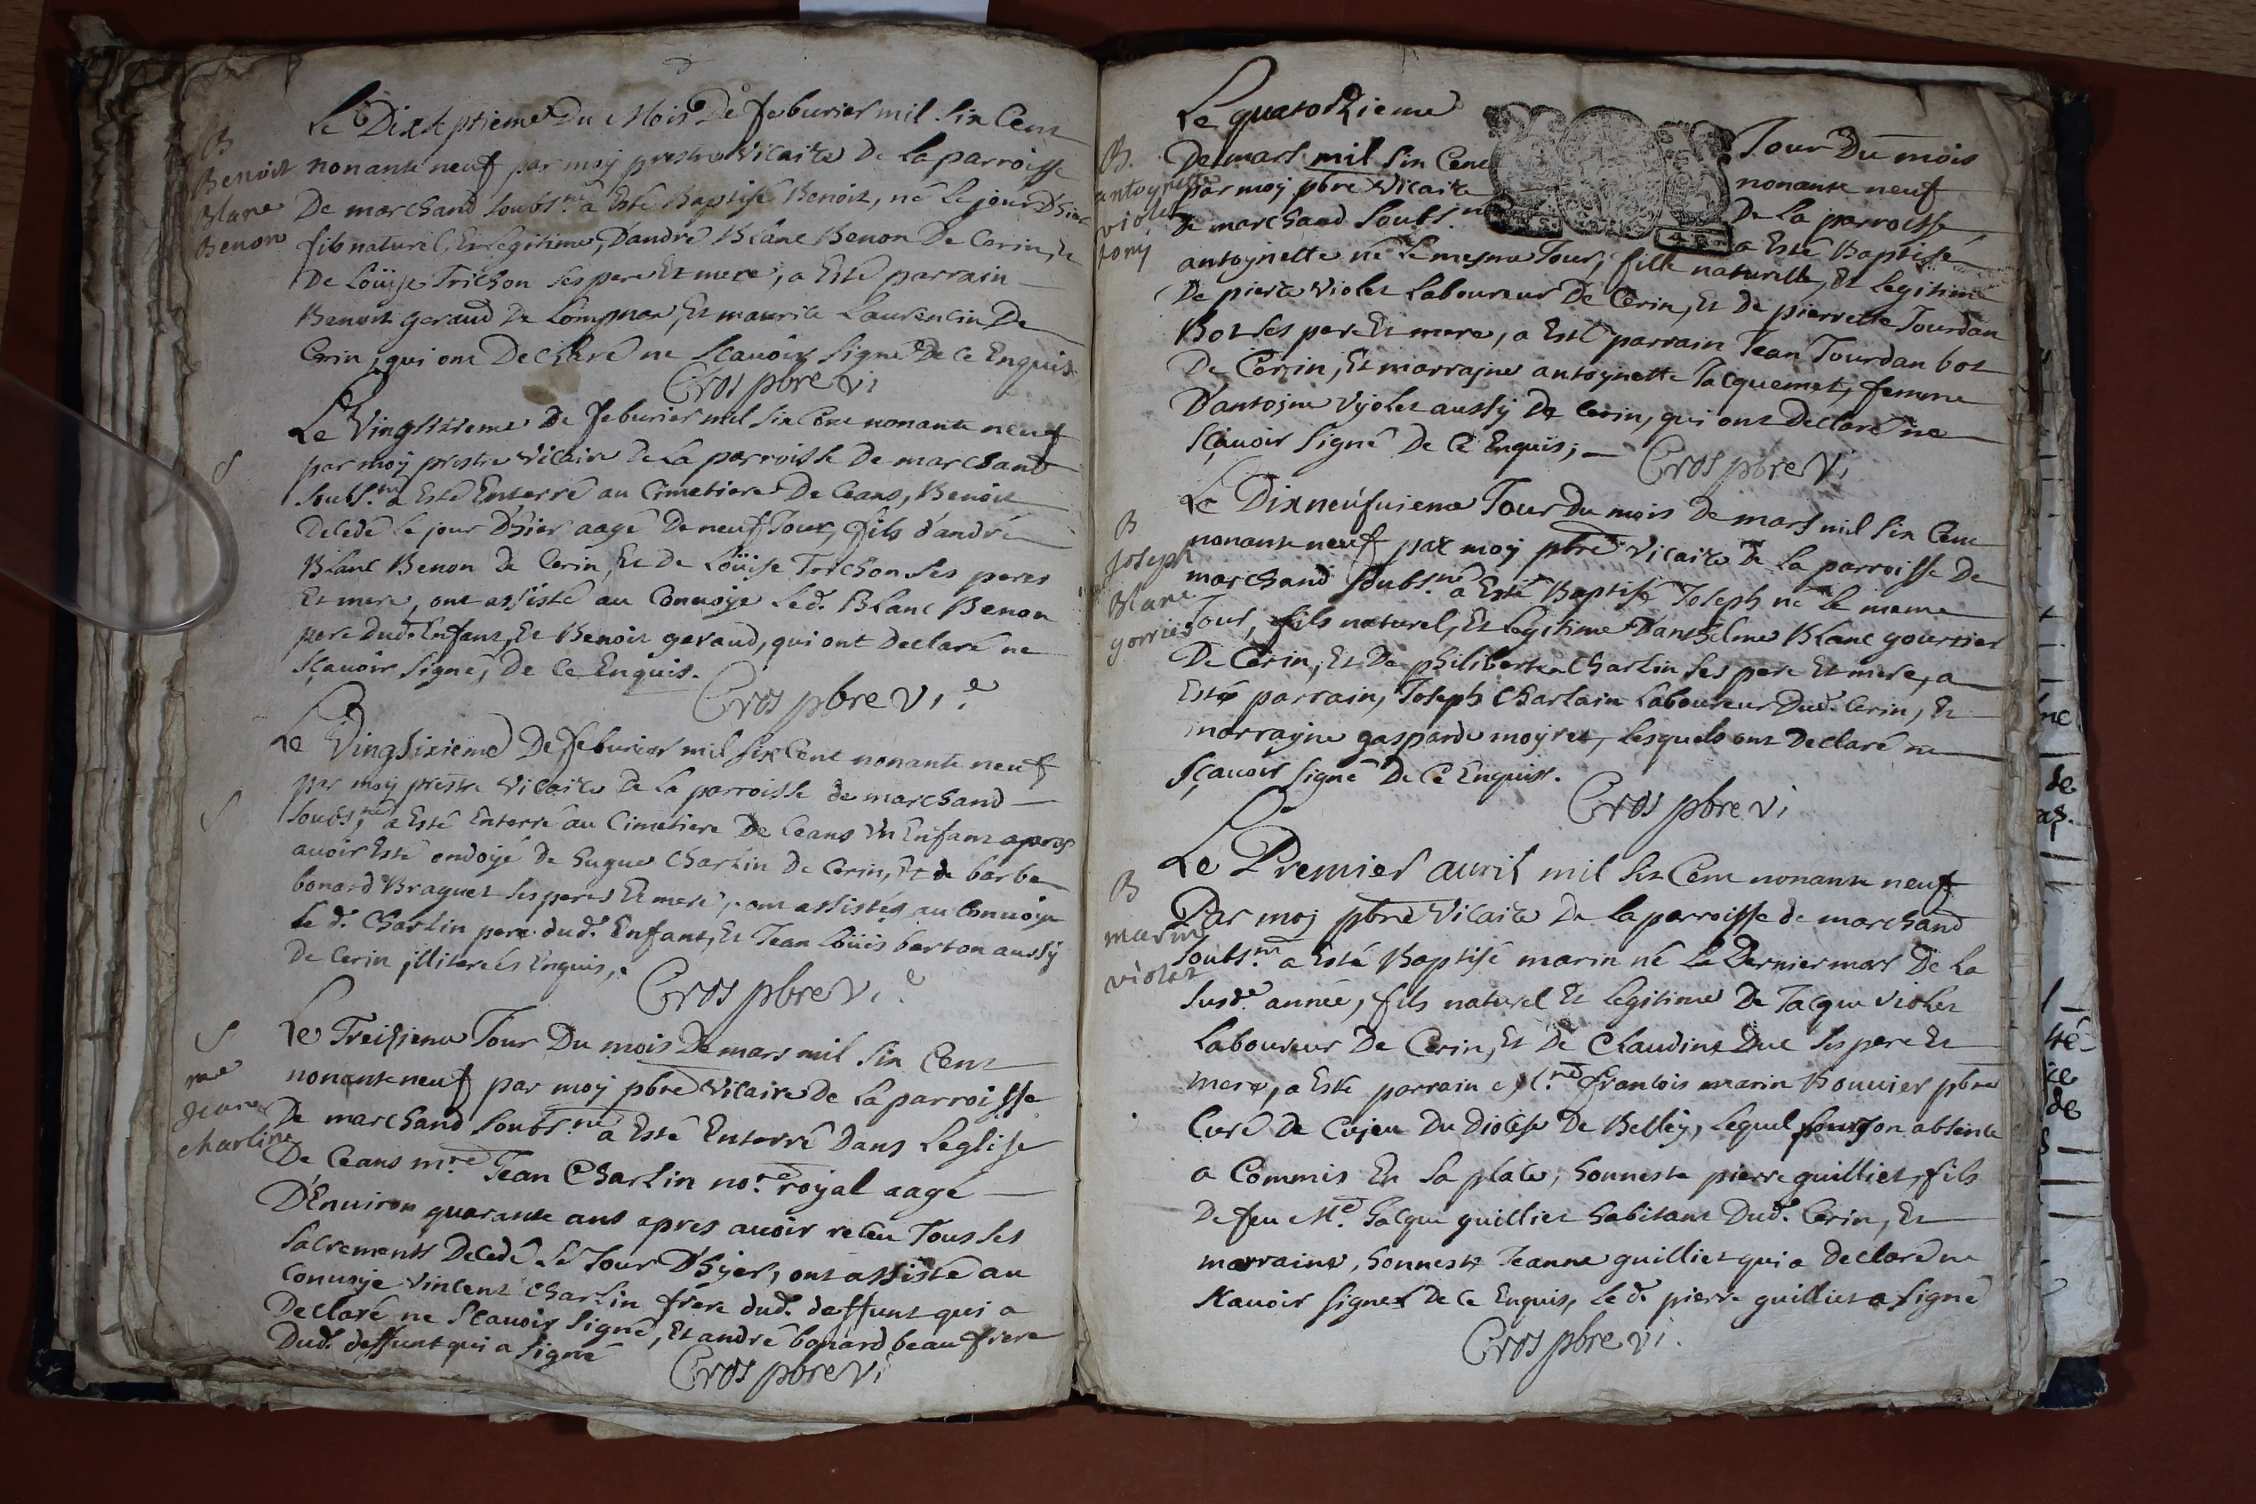 B
Benoit
Blanc
Benon
Le Dixseptieme Du Mois De feburier mil six Cent
nonante neuf par moy prestre vicaire De la parroisse
De marchand soubs.né a Esté Baptisé Benoit, né le jour D'hier
fils naturel, Et legitime, D'andré Blanc Benon De Cerin, Et
De Loüise Trichon ses pere Et mere, a Esté parrain
Benoit geraud De Lompnas, Et maurice Laurencin De
Cerin, qui ont Declaré ne scavoir signé De Ce Enquis
Cros pbre vi
S
Le Vingsixieme De feburier mil six Cent nonante neuf
par moy prestre vicaire De La parroisse De marchand
soubs.né a Esté Enterré au Cimetiere De Ceans, Benoit
Decedé le jour D'hier aagé De neuf Jour, fils d'andré
Blanc Benon De Cerin, Et De Loüise Trichon ses peres
Et mere, ont assisté au Convoÿe Led. Blanc Benon
pere Dud. Enfant, Et Benoit geraud, qui ont Declaré ne
sçavoir signé, De Ce Enquis.
Cros pbre vi.e
S
Le Vingsixieme De feburier mil six Cent nonante neuf
par moy prestre vicaire De la parroisse de marchand
soubs.né a Esté Enterré au Cimetiere De Ceans Un Enfant apres
avoir Esté ondoyé de hugue Charlin De Cerin, Et de barbe
bonard Braguet ses peres Et mere, ont assistés au Convoÿe
le d. Charlin pere dud. Enfant, Et Jean Loüis berton aussÿ
De Cerin illiterés Enquis,
Cros pbre vi.e
S
me
Jean
charlin
Le Treizieme Jour Du mois De mars mil six Cent
nonante neuf par moy pbre vicaire de La parroisse
De marchand soubs.né a Esté Enterré Dans Leglise
De Ceans m.re Jean Charlin no.re royal aagé
D'Environ quarante ans apres avoir receu Tous ses
sacrements Decedé le Jour D'hyer, ont assisté au
Convoye vincent Charlin frere dud. deffunt qui a
Declaré ne scavoir signé, Et andré bonard beau frere
Dud. deffunt qui a signé
Cros pbre vi
B.
antoynette
violet
tonÿ
Le quatorzieme Jour Du mois
De mars mil six Cent nonante neuf
par moy pbre vicaire De La parroisse
de marchand soubs.né a Esté Baptisé
antoynette né le mesme Jour, fille naturelle, Et legitime
De pierre violet Laboureur De Cerin, Et De pierrette Jourdan
Bot ses pere Et mere, a Esté parrain Jean Jourdan bot
De Cerin, Et marrajne antoynette Jacquemet, femme
D'antojne vÿolet aussÿ De Cerin, qui ont Declaré ne
sçavoir signé De Ce Enquis;
Cros pbre vi
B
Joseph
Blanc
gorrier
Le Dixneufuieme Jour Du mois De mars mil six Cent
nonante neuf par moy pbre vicaire De la parroisse De
marchand soubs.né a Esté Baptisé Joseph né le meme
Jour, fils naturel, Et legitime D'anthelme Blanc gourrier
De Cerin, Et De philiberte Charlin ses pere Et mere, a
Esté parrain, Joseph Charlain Laboureur Dud. Cerin, Et
marrayne gasparde moyret, lesquels ont Declaré ne
sçavoir signé De Ce Enquis.
Cros pbre vi
B
marin
violet
Le Premier avril mil six Cent nonante neuf
Par moj pbre vicaire De la parroisse de marchand
soubs.né a Esté Baptisé marin né Le Dernier mars De La
susd.e année, fils naturel Et legitime De Jacque violet
Laboureur De Cerin, Et De Claudine Duc ses pere Et
mere, a Esté parrain M.re francois marin Bouvier pbre
Curé De Cujeu Du Diocese De Belleÿ, Lequel pour son absence
a Commis En sa place, honneste pierre guilliet, fils
De feu M.e Jacque guilliet habitant Dud. Cerin, Et
marraine, honneste Jeanne guilliet qui a Declaré ne
scavoir signer De Ce Enquis, Le d. pierre guilliet a signé
Cros pbre vi.